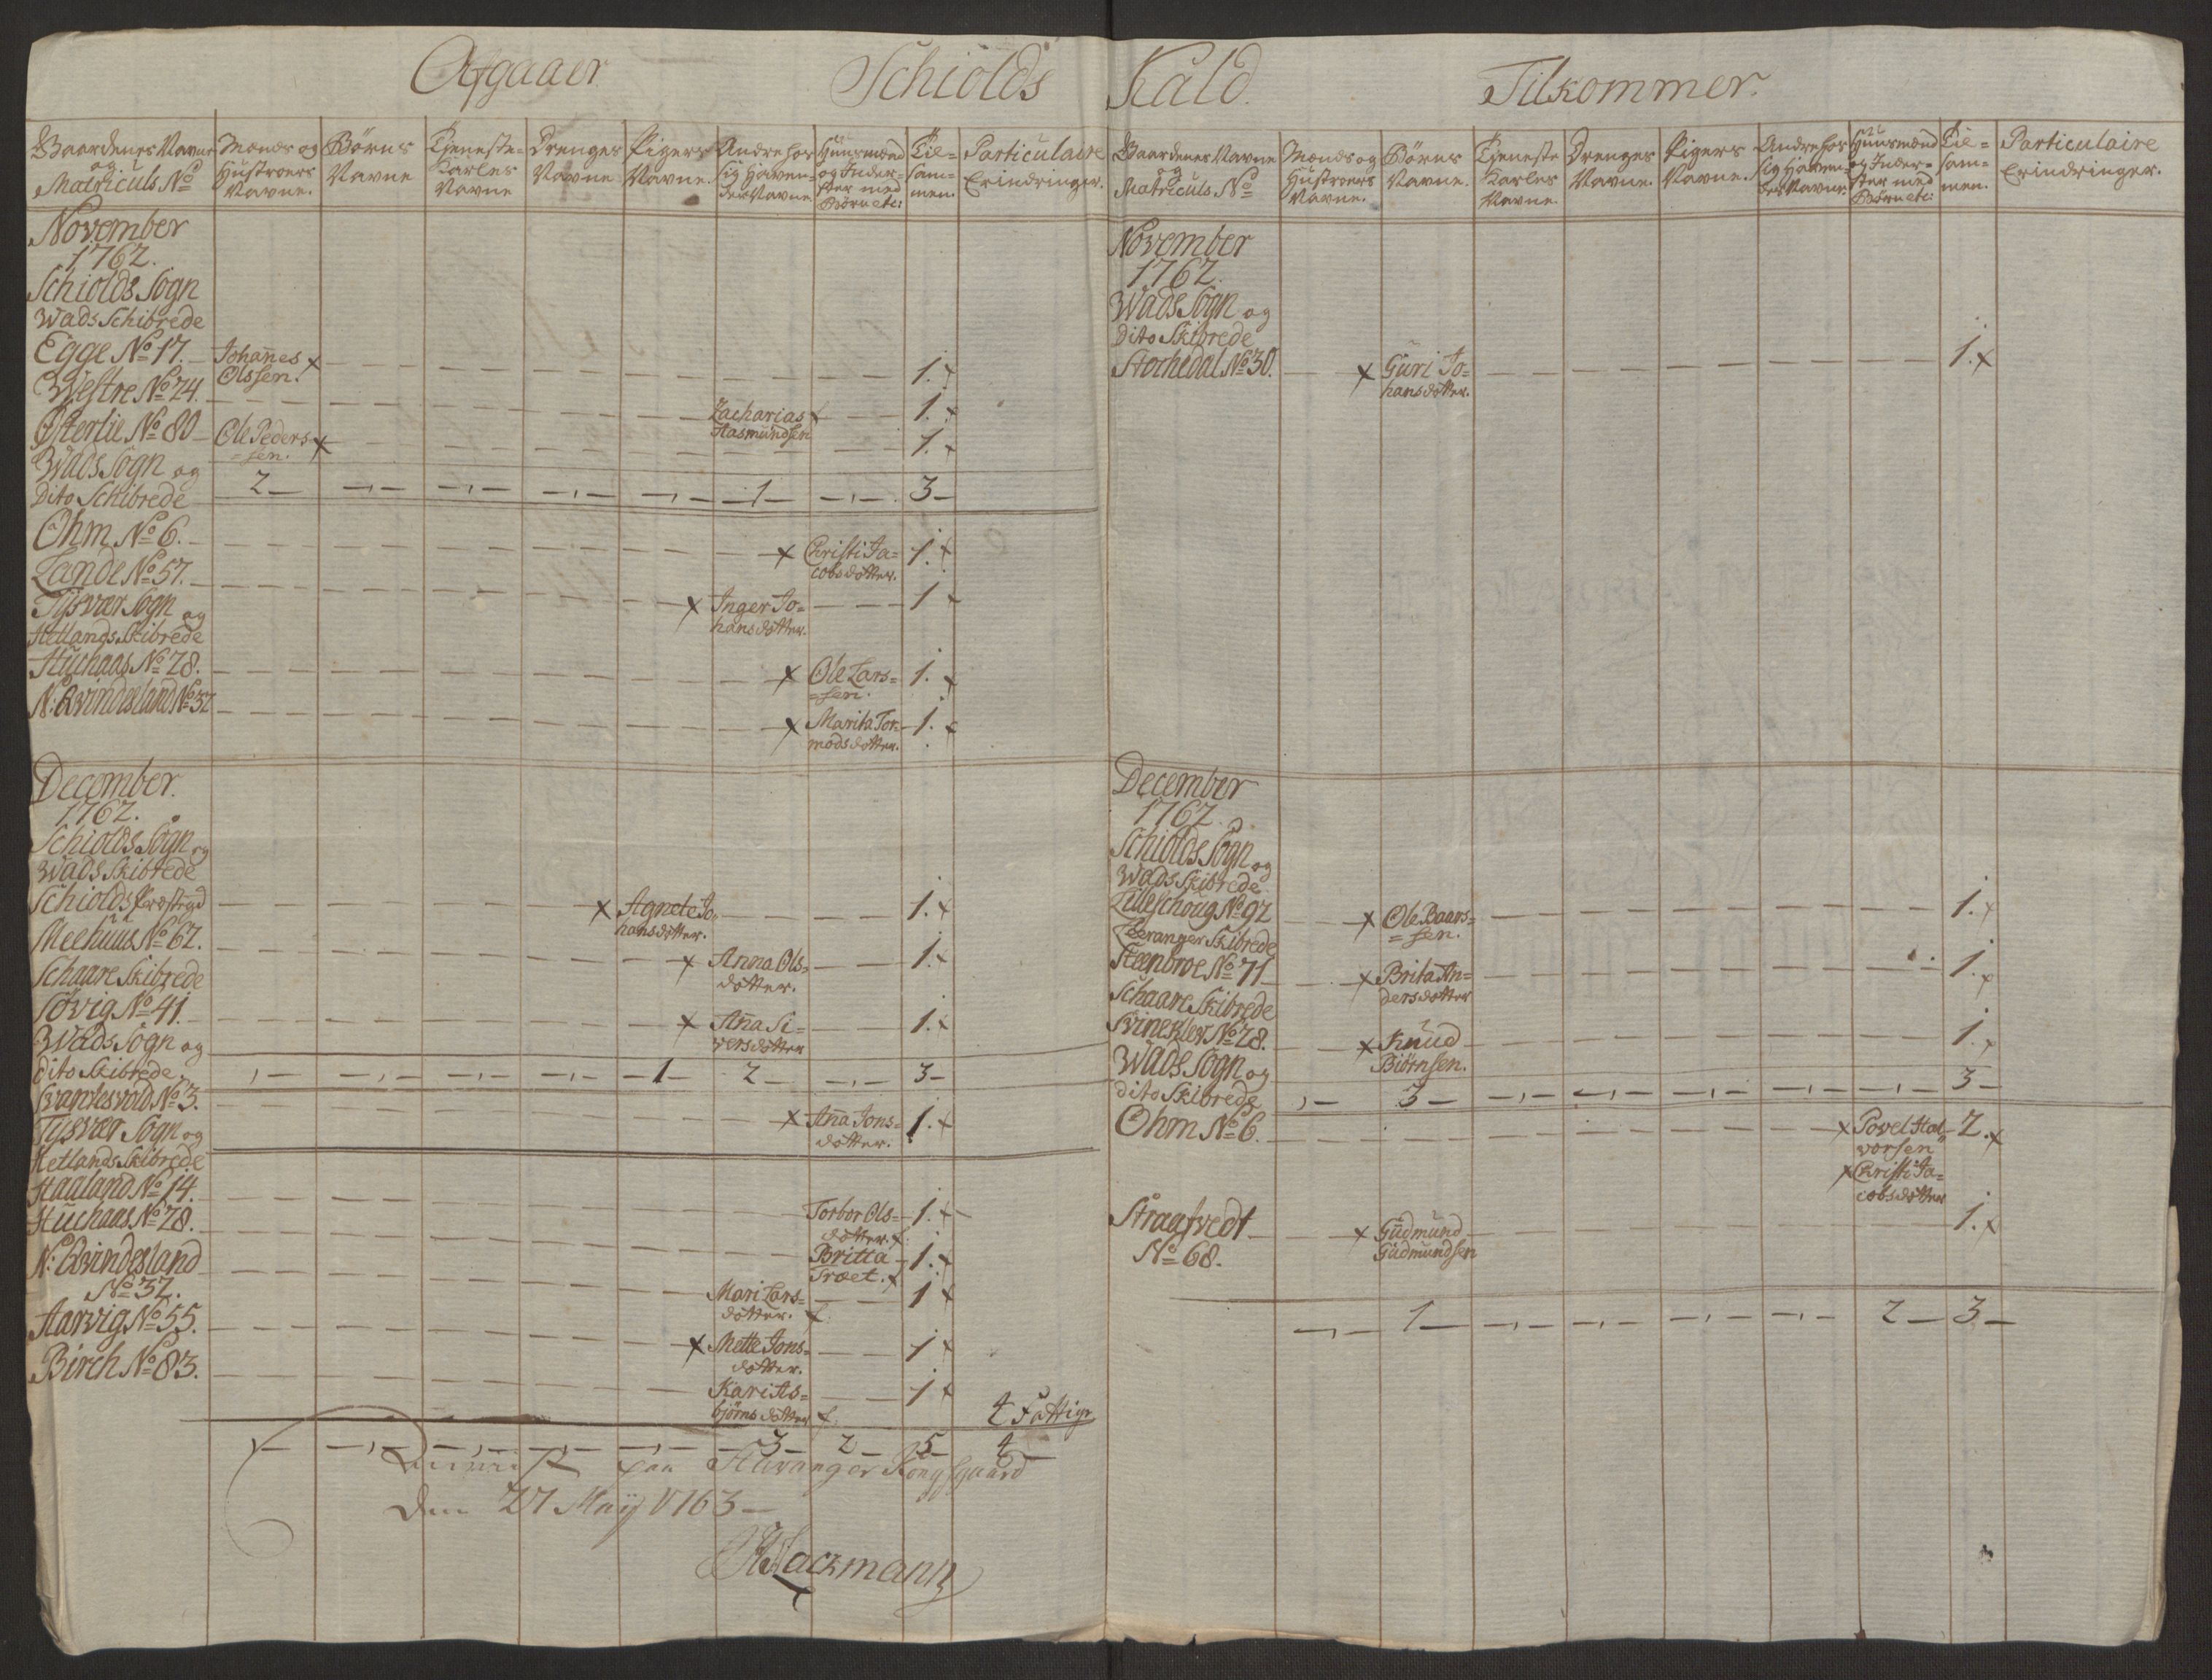 Afgaaer
Schiolds Kald.
Tilkommer.
Gaardenes Navne og Matriculs No
Mænds og Hustroers Navne.
Börns Navne
Tjeneste-Karles Navne
Drenges Navne
Pigers Navne.
Andre for sig Haven-des Navne
Huusmænd og Inder-ster med Börn etc:
Til-sam-men.
Particulaire Erindringer.
November
1762.
Schiolds Sogn
Wads Schibrede
Egge No 17. Johannes Olssen. x 1. x
Westre No 24. Zacharias Aasmundsen x 1. x
Østerlie No 80 Ole Peders=sen. x 1. x
Wads Sogn og
Dito Schibrede
2 — 1 — 3 —
Ohm No 6. x Christi Ja=cobsdotter. 1. x
Lande No 57. x Inger Jo=hansdotter. 1 x
Tysvær Sogn og
Hetlands Skibrede
Huchaas No 28. x Ole Lars=sen. 1. x
N: Qvindesland No 32 x Marita Tor=modsdotter. 1. x
December.
1762.
Schiolds Sogn og
Wads Skibrede
Schiolds Præstegd x Agnete Jo=hansdotter. 1. x
Meehuus No 62. x Anna Ols=dotter. 1. x
Schaare Skibrede
Søvig No 41. x Ana Si=versdotter 1. x
Wads Sogn og
dito Skibrede.
1 — 2 — 3 —
Svantesvold No 3. x Ana Jons=dotter. 1. x
Tysvær Sogn og
Hetlands Skibrede
Haaland No 14. Torbor Ols=dotter. x 1. x
Huchaas No 28. Britta Træet. x 1. x
N: Qvindesland
No 32. Mari Lars=dotter. x 1 x
Aarvig No 55. x Mette Jons=dotter. 1 x
Birch No 83. Kari As=bjørns dotter x 1 x
4 Fattige
3 — 2 — 5 — 4
paa Stavanger Kongsgaard
den 27 Maij 1763 —
Hackmann
Gaardenes Navne og Matriculs No
Mænds og Hustroers Navne.
Börns Navne.
Tjeneste Karles Navne.
Drenges Navne.
Pigers Navne.
Andre for sig Haven-des Navne.
Huusmænd og Inder-ster med Börn etc:
Til-sam-men.
Particulaire Erindringer.
November
1762.
Wads Sogn og
Dito Skibrede
Stochedal No 30. x Guri Jo=hansdotter. 1. x
December
1762.
Schiolds Sogn og
Wads Skibrede
Lilleschoug No 92 x Ole Baars=sen. 1. x
Leranger Skibrede
Steenbroe No 71 x Brita An=dersdotter 1. x
Schaare Skibrede
Svinekler No 28. x Knud Biørnsen. 1. x
Wads Sogn og
dito Skibrede
3 — 3 —
Ohm No 6. x Povel Hal=vorsen 2. x
x Christi Ja=cobsdotter
Straatvedt
No 68. x Gudmund Gudmundsen 1. x
1 — 2 — 3 —